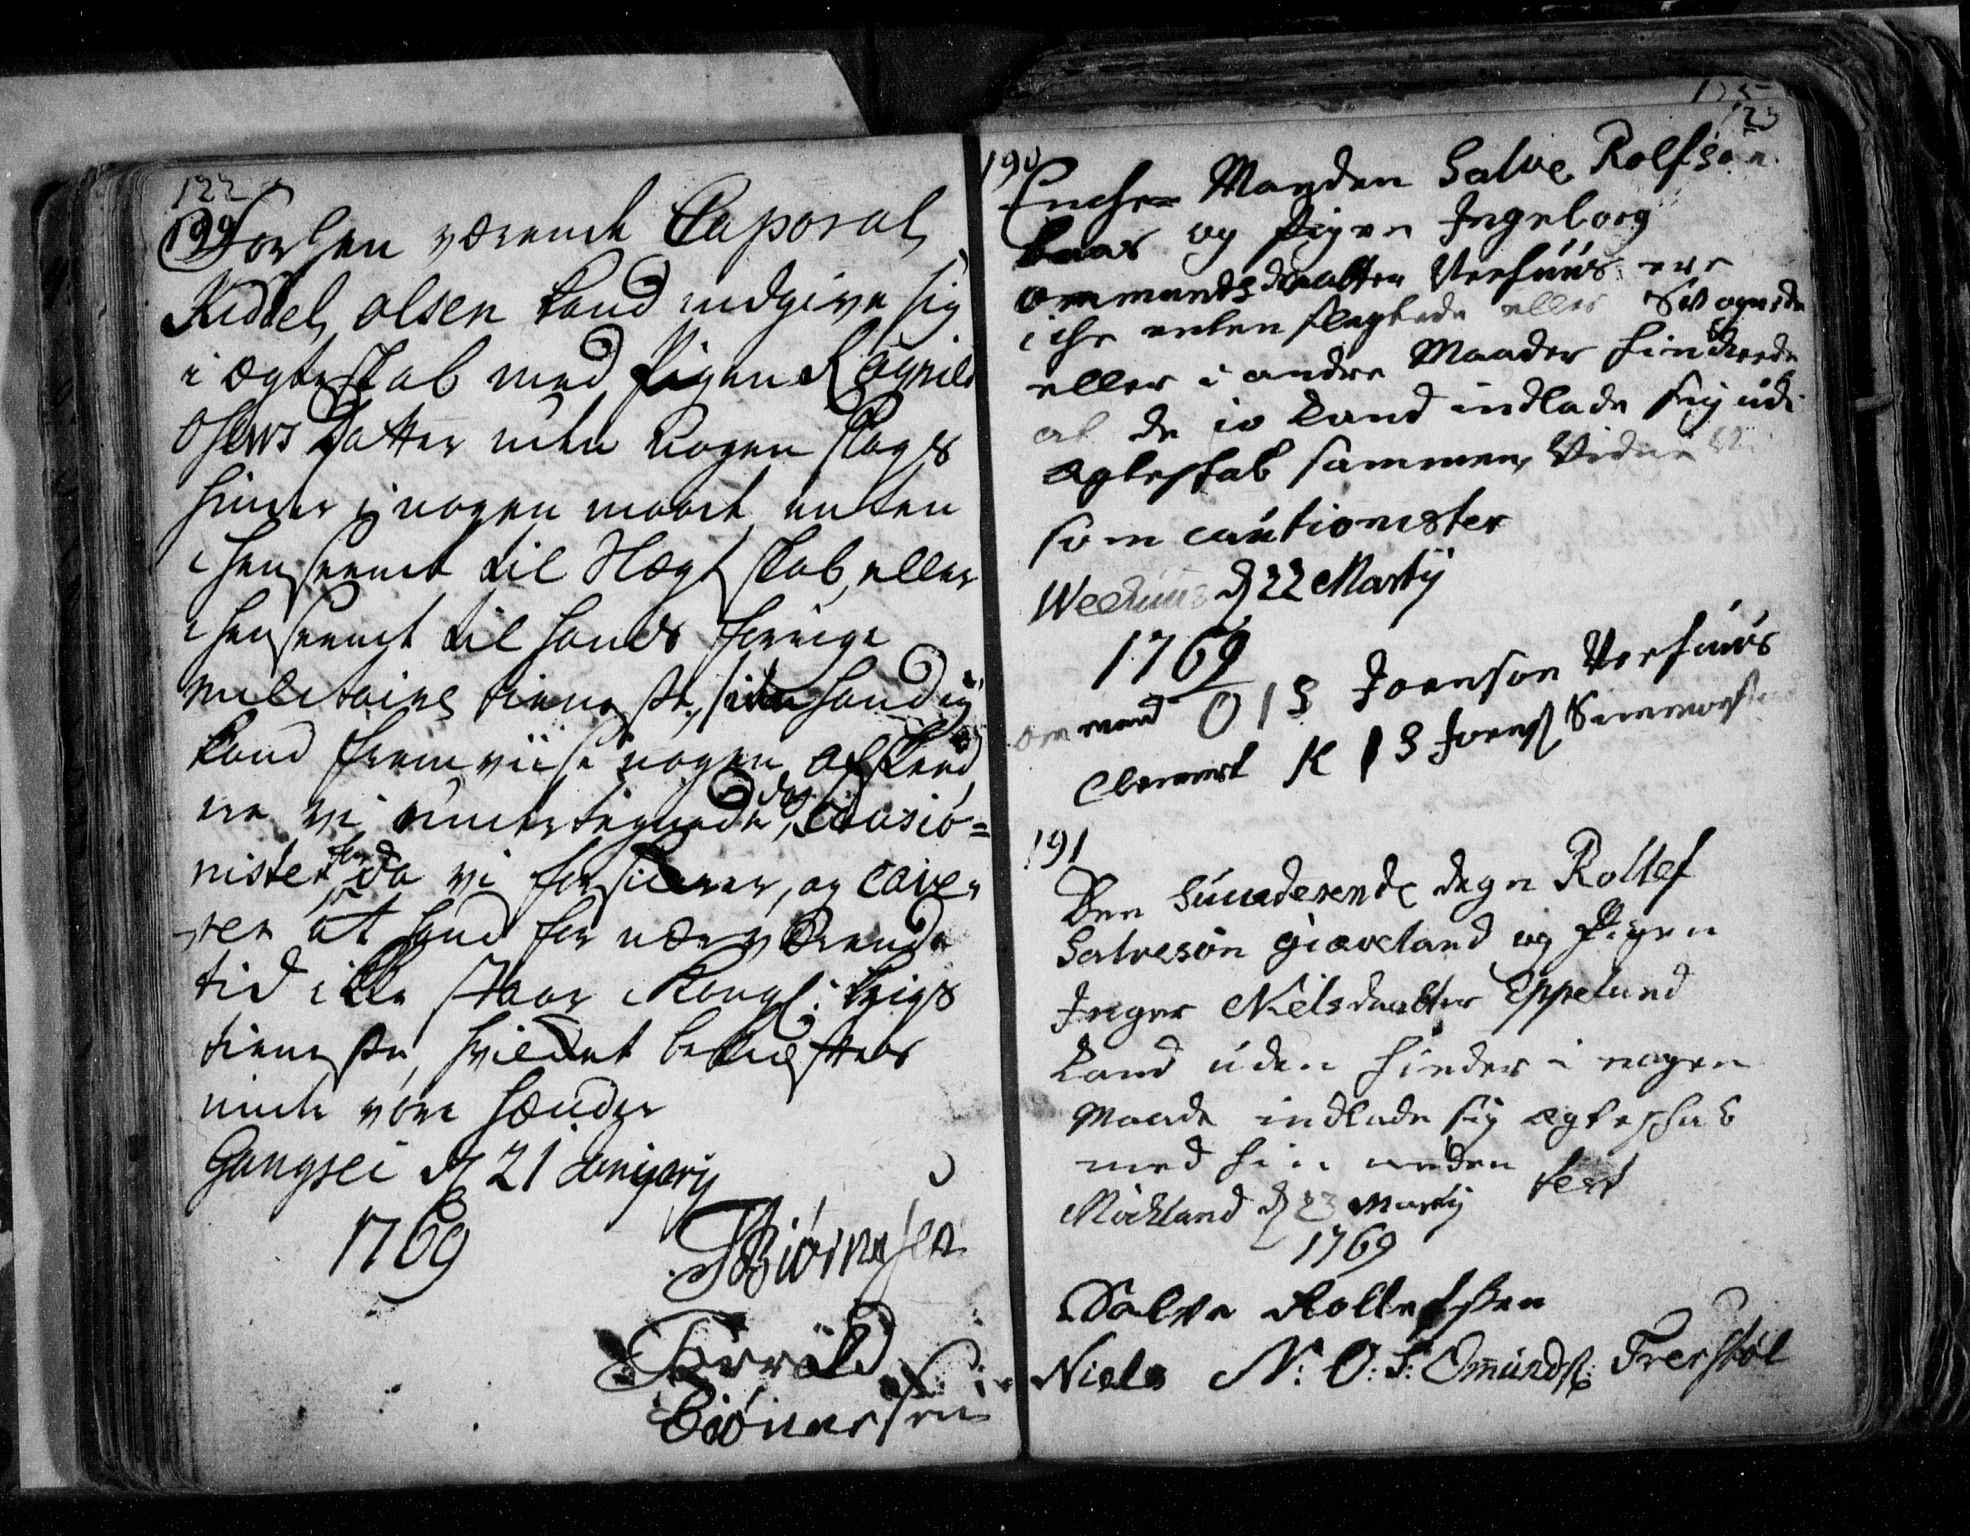 122
199
Forhen værende Caporal
Kiddel olsen kand indgive sig
i ægteskab med Pigen Ragnild
Osens Datter uden nogen slags
hinder i nogen maade enten
i henseende til Slægtskab, eller
i henseende til hands forrige
militaire tieneste, siden hand ey
kand fremviise nogen afskeed
ere vi underteignede Causio=
nister da vi forsikrer, og cave-
rer at hand for nærværende
tid ikke staar i Kongl: krigs
tieneste, hvilcket bekræftes
under vore hænder
Gangsei d 21 Janijarij
1769
TBiørnsen
Torrald
Biørnersen
125
123
190
Enche Manden Salve Rolfsøn
og Pigen Ingeborg
ommundsdaatter Veehuus ere
iche enten slegtede eller Svogrede
eller i andre Maader hindrede
at de jo kand indlade sig udi
ægteskab sammen, Vidner
som cautionister
Weehuus d 22 Martij
1769
ommund O I S Joensøn Veehuus
Clemmet K I S
191
Den Studerende degn Rollef
Salvesøn giæveland og Pigen
Inger Nielsdaatter Eppeland
kand uden hinder i nogen
Maade indlade sig ægteschab
med hin anden test
Mickland d 23 Martij
1769
Salve Rollefsen
Niels N: O: S: OmundsS: Trerstøl